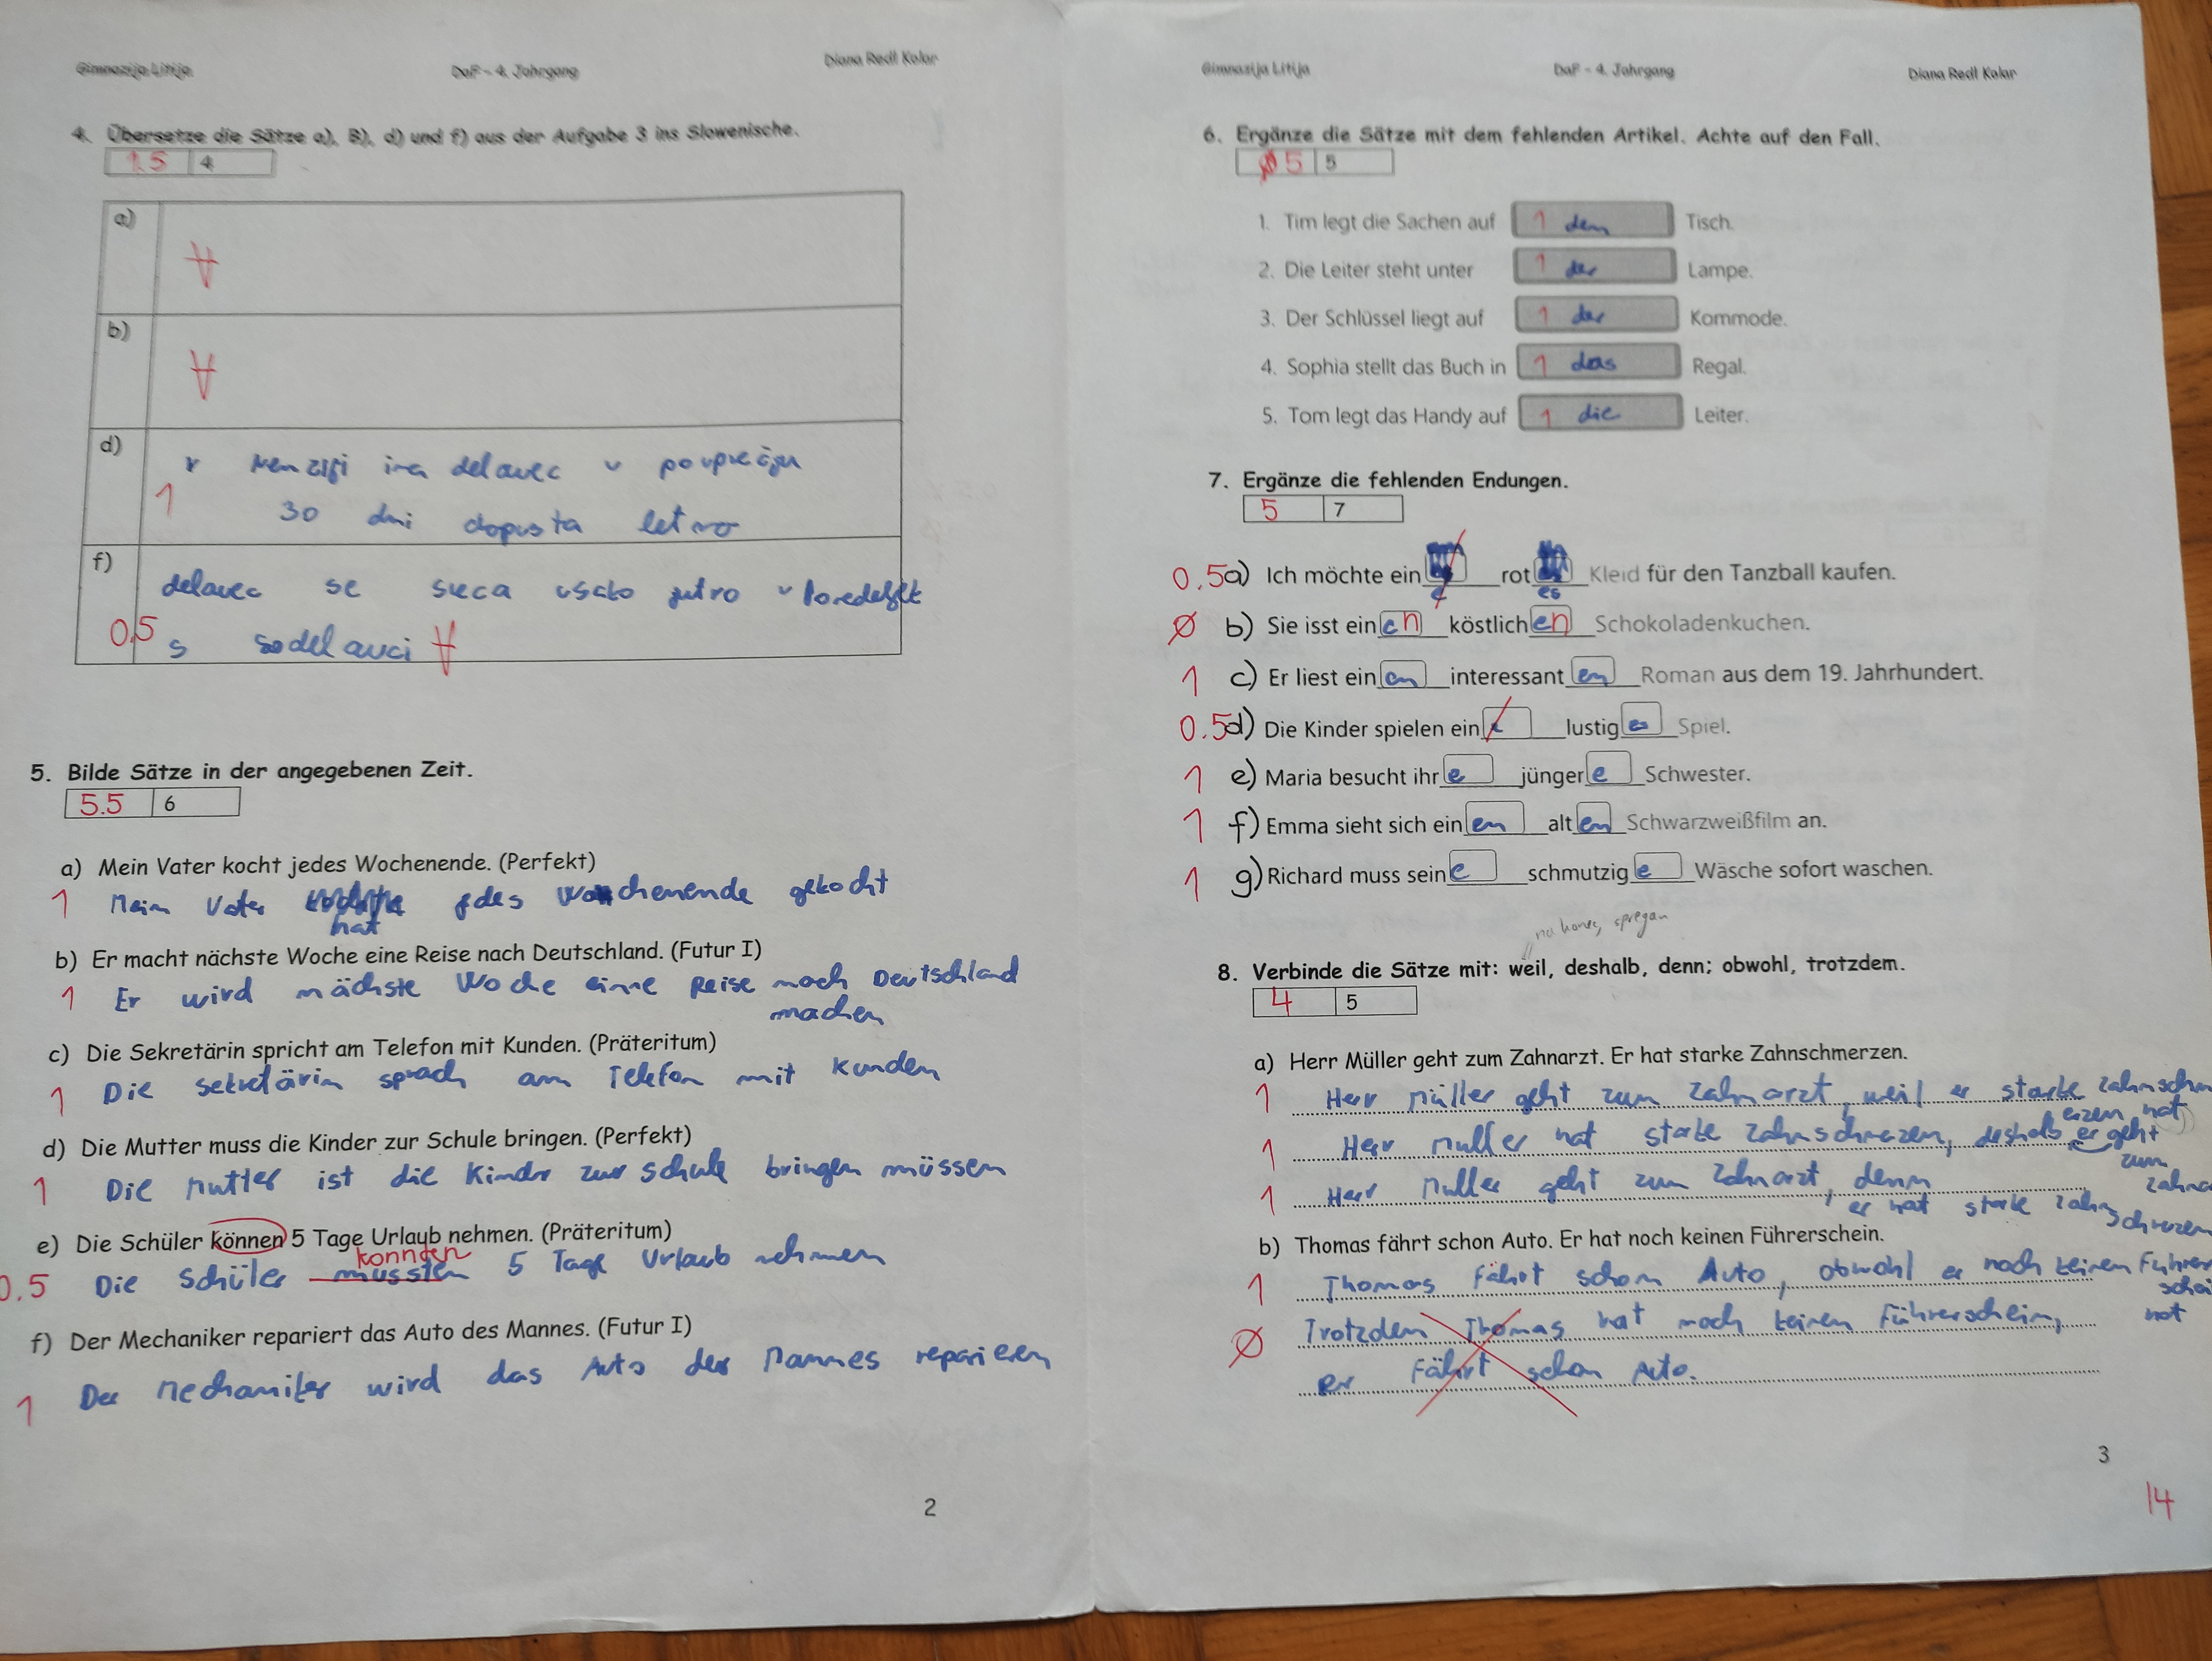 Gimnazija Litija
DaF – 4. Jahrgang
Diana Redl Kolar
4. Übersetze die Sätze a), B), d) und f) aus der Aufgabe 3 ins Slowenische.
1.5 4
a)
b)
d) v ima delavec v povprečju
1 30 dni dopusta letno
f) delavec se sreca vsako jutro v
0.5 s sodelavci
5. Bilde Sätze in der angegebenen Zeit.
5.5 6
a) Mein Vater kocht jedes Wochenende. (Perfekt)
1 Mein Vater jdes Wochenende gekocht
hat
b) Er macht nächste Woche eine Reise nach Deutschland. (Futur I)
1 Er wird nächste Woche eine Reise nach Deutschland
machen
c) Die Sekretärin spricht am Telefon mit Kunden. (Präteritum)
1 Die Sekretärin sprach am Telefon mit Kunden
d) Die Mutter muss die Kinder zur Schule bringen. (Perfekt)
1 Die Mutter ist die Kinder zur Schule bringen müssen
e) Die Schüler können 5 Tage Urlaub nehmen. (Präteritum)
konnten
0.5 Die Schüler mussten 5 Tage Urlaub nehmen
f) Der Mechaniker repariert das Auto des Mannes. (Futur I)
1 Der Mechaniker wird das Auto des Mannes reparieren
2
Gimnazija Litija
DaF – 4. Jahrgang
Diana Redl Kolar
6. Ergänze die Sätze mit dem fehlenden Artikel. Achte auf den Fall.
5 5
1. Tim legt die Sachen auf 1 den Tisch.
2. Die Leiter steht unter 1 der Lampe.
3. Der Schlüssel liegt auf 1 der Kommode.
4. Sophia stellt das Buch in 1 das Regal.
5. Tom legt das Handy auf 1 die Leiter.
7. Ergänze die fehlenden Endungen.
5 7
0.5 a) Ich möchte ein e rot es Kleid für den Tanzball kaufen.
Ø b) Sie isst ein en köstlich en Schokoladenkuchen.
1 c) Er liest ein en interessant en Roman aus dem 19. Jahrhundert.
0.5 d) Die Kinder spielen ein lustig es Spiel.
1 e) Maria besucht ihr e jünger e Schwester.
1 f) Emma sieht sich ein en alt en Schwarzweißfilm an.
1 g) Richard muss sein e schmutzig e Wäsche sofort waschen.
na konec spregan
8. Verbinde die Sätze mit: weil, deshalb, denn; obwohl, trotzdem.
4 5
a) Herr Müller geht zum Zahnarzt. Er hat starke Zahnschmerzen.
1 Herr Müller geht zum Zahnarzt, weil er starke Zahnschm
erzen hat
1 Herr Muller hat starke Zahnschmezen, deshalb er geht
zum
1 Herr Muller geht zum Zahnarzt, denn
er hat starke Zahnschmezen
b) Thomas fährt schon Auto. Er hat noch keinen Führerschein.
1 Thomas fährt schon Auto, obwohl er noch keinen Führer
schei
hat
Ø Trotzdem Thomas hat noch keinen Führerschein,
er fährt schon Auto.
3
14